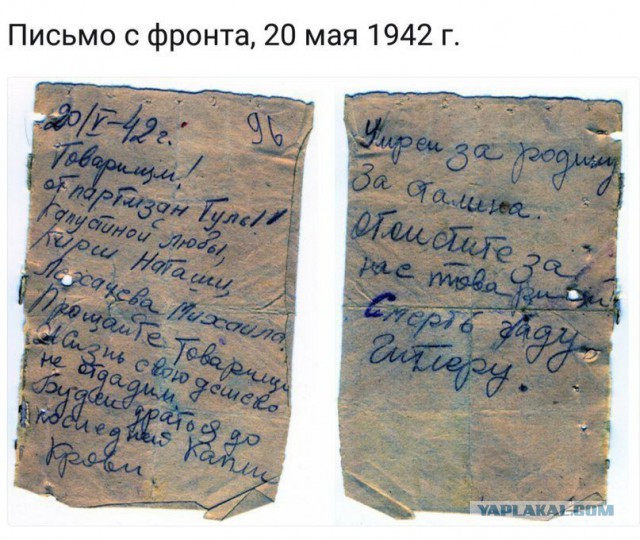 Письмо с фронта, 20 мая 1942 г.
20/V-42 г.
96
Товарищи!
от партизан Тулы!
Капустиной Любы,
Кирш Наташи,
Михаила.
Прощайте Товарищи
Жизнь свою дешево
не отдадим
Будем драться до
последней Капли
Крови
Умрем за родину
За Сталина.
Отомстите за
нас товарищи
Смерть гаду
Гитлеру.
YAPLAKAL.COM